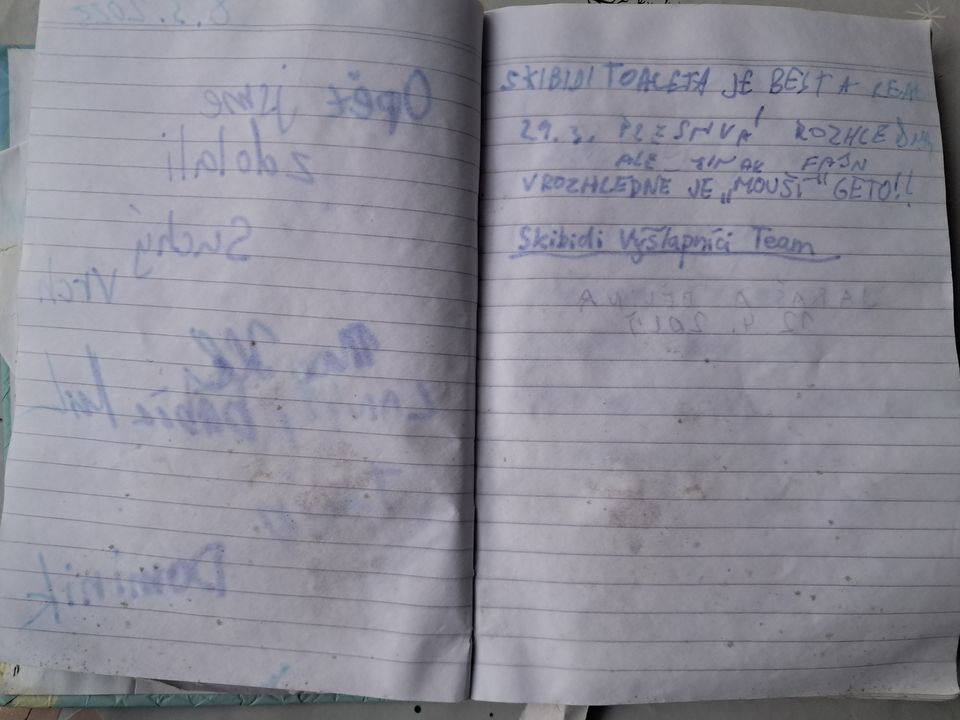 8.5.2022
Opět jsme
zdolali
Suchý
vrch
Dominik
SKIBIDI TOALETA JE BEST A REAL
29.3. ROZHLEDNA
ALE JINAK FAJN
V ROZHLEDNE JE „MOUŠÍ“ GETO!!
Skibidi Vyšlapníci Team
JARAŠ A
12.4.